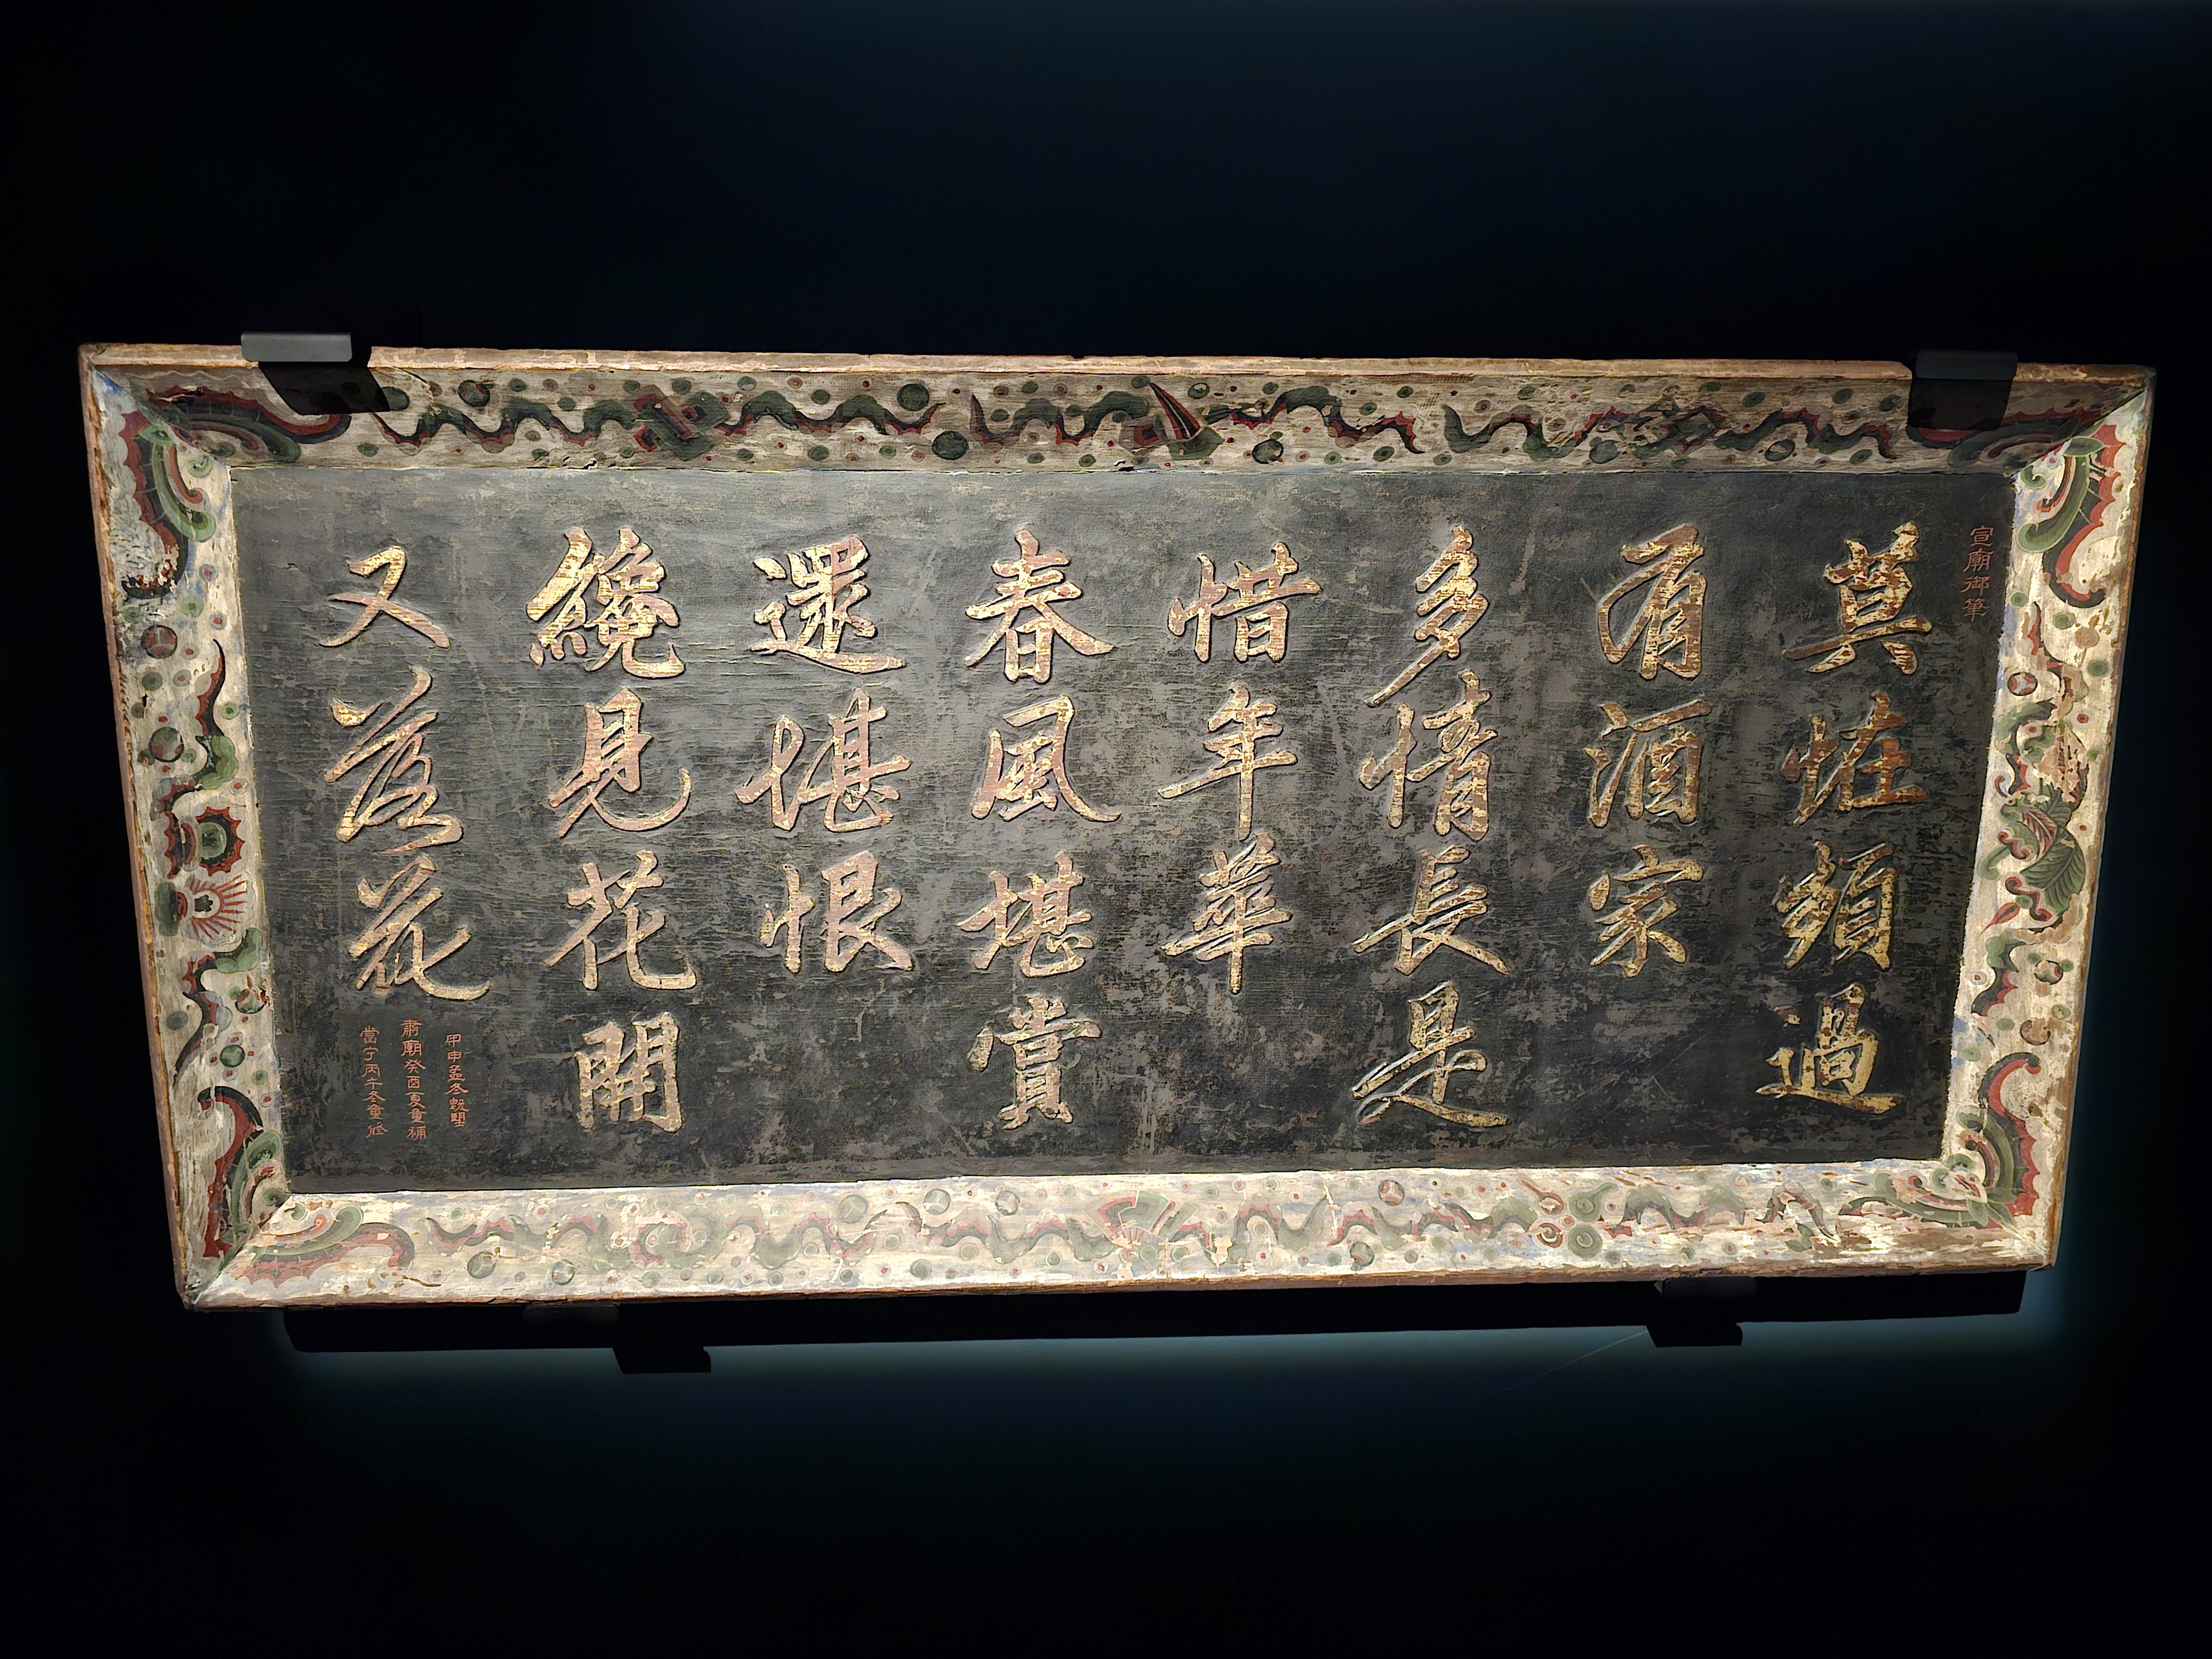 宣廟御筆
莫恠頻過
有酒家
多情長是
惜年華
春風堪賞
還堪恨
纔見花開
又落花
甲申孟冬敬摸
肅廟癸酉夏重補
當宁丙午冬重修